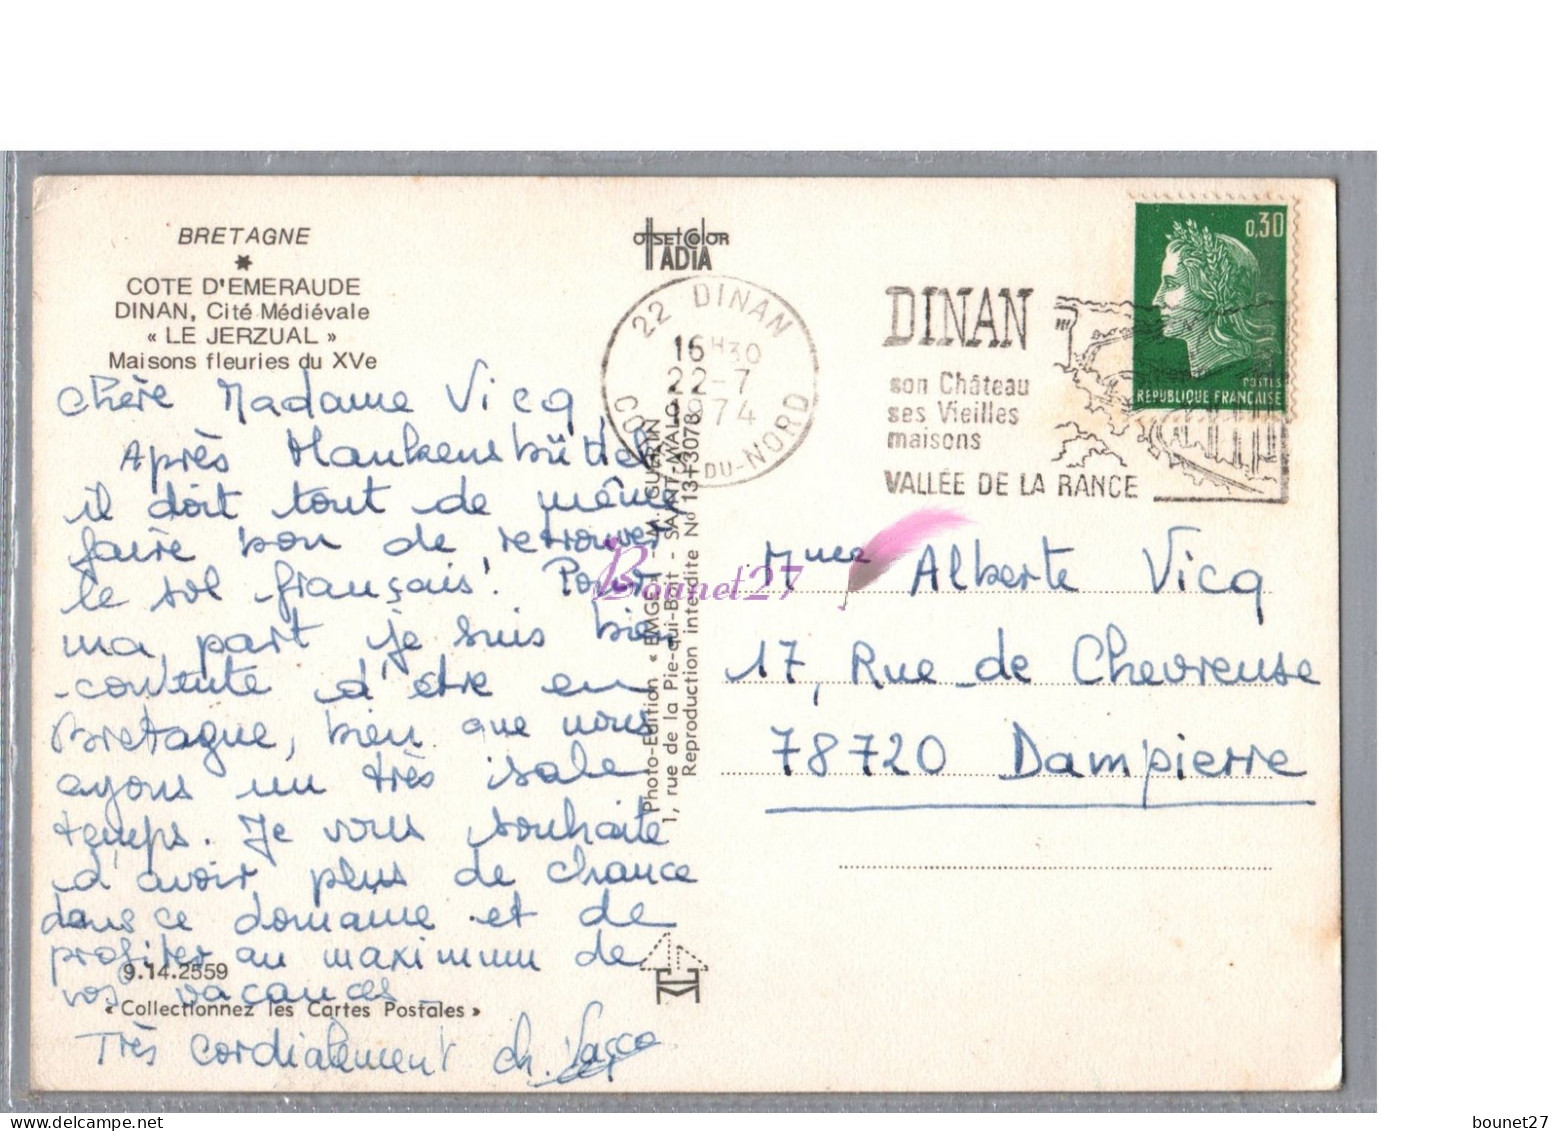 BRETAGNE
*
COTE D'EMERAUDE
DINAN, Cité Médiévale
« LE JERZUAL »
Maisons fleuries du XVe
chère Madame Vicq
Après Hankensbüttel
il doit tout de même
faire bon de retrouver
le sol français! Pour
ma part je suis bien
contente d'être en
Bretagne, bien que nous
ayons un très sale
temps. Je vous souhaite
d'avoir plus de chance
dans ce domaine et de
profiter au maximum de
vos vacances
Très cordialement ch.
9.14.2559
« Collectionnez les Cartes Postales »
OffSETCOlOR
IADIA
Photo-Edition « EMGE » M. GUERIN
1, rue de la Pie-qui-Boit - SAINT-MALO
Reproduction interdite No 13+3078
22 DINAN
16H30
22-7
1974
DU-NORD
DINAN
son Château
ses Vieilles
maisons
VALLÉE DE LA RANCE
0,30
POSTES
REPUBLIQUE FRANÇAISE
Mme Alberte Vicq
17, Rue de Chevreuse
78720 Dampierre
Bounet27
bounet27